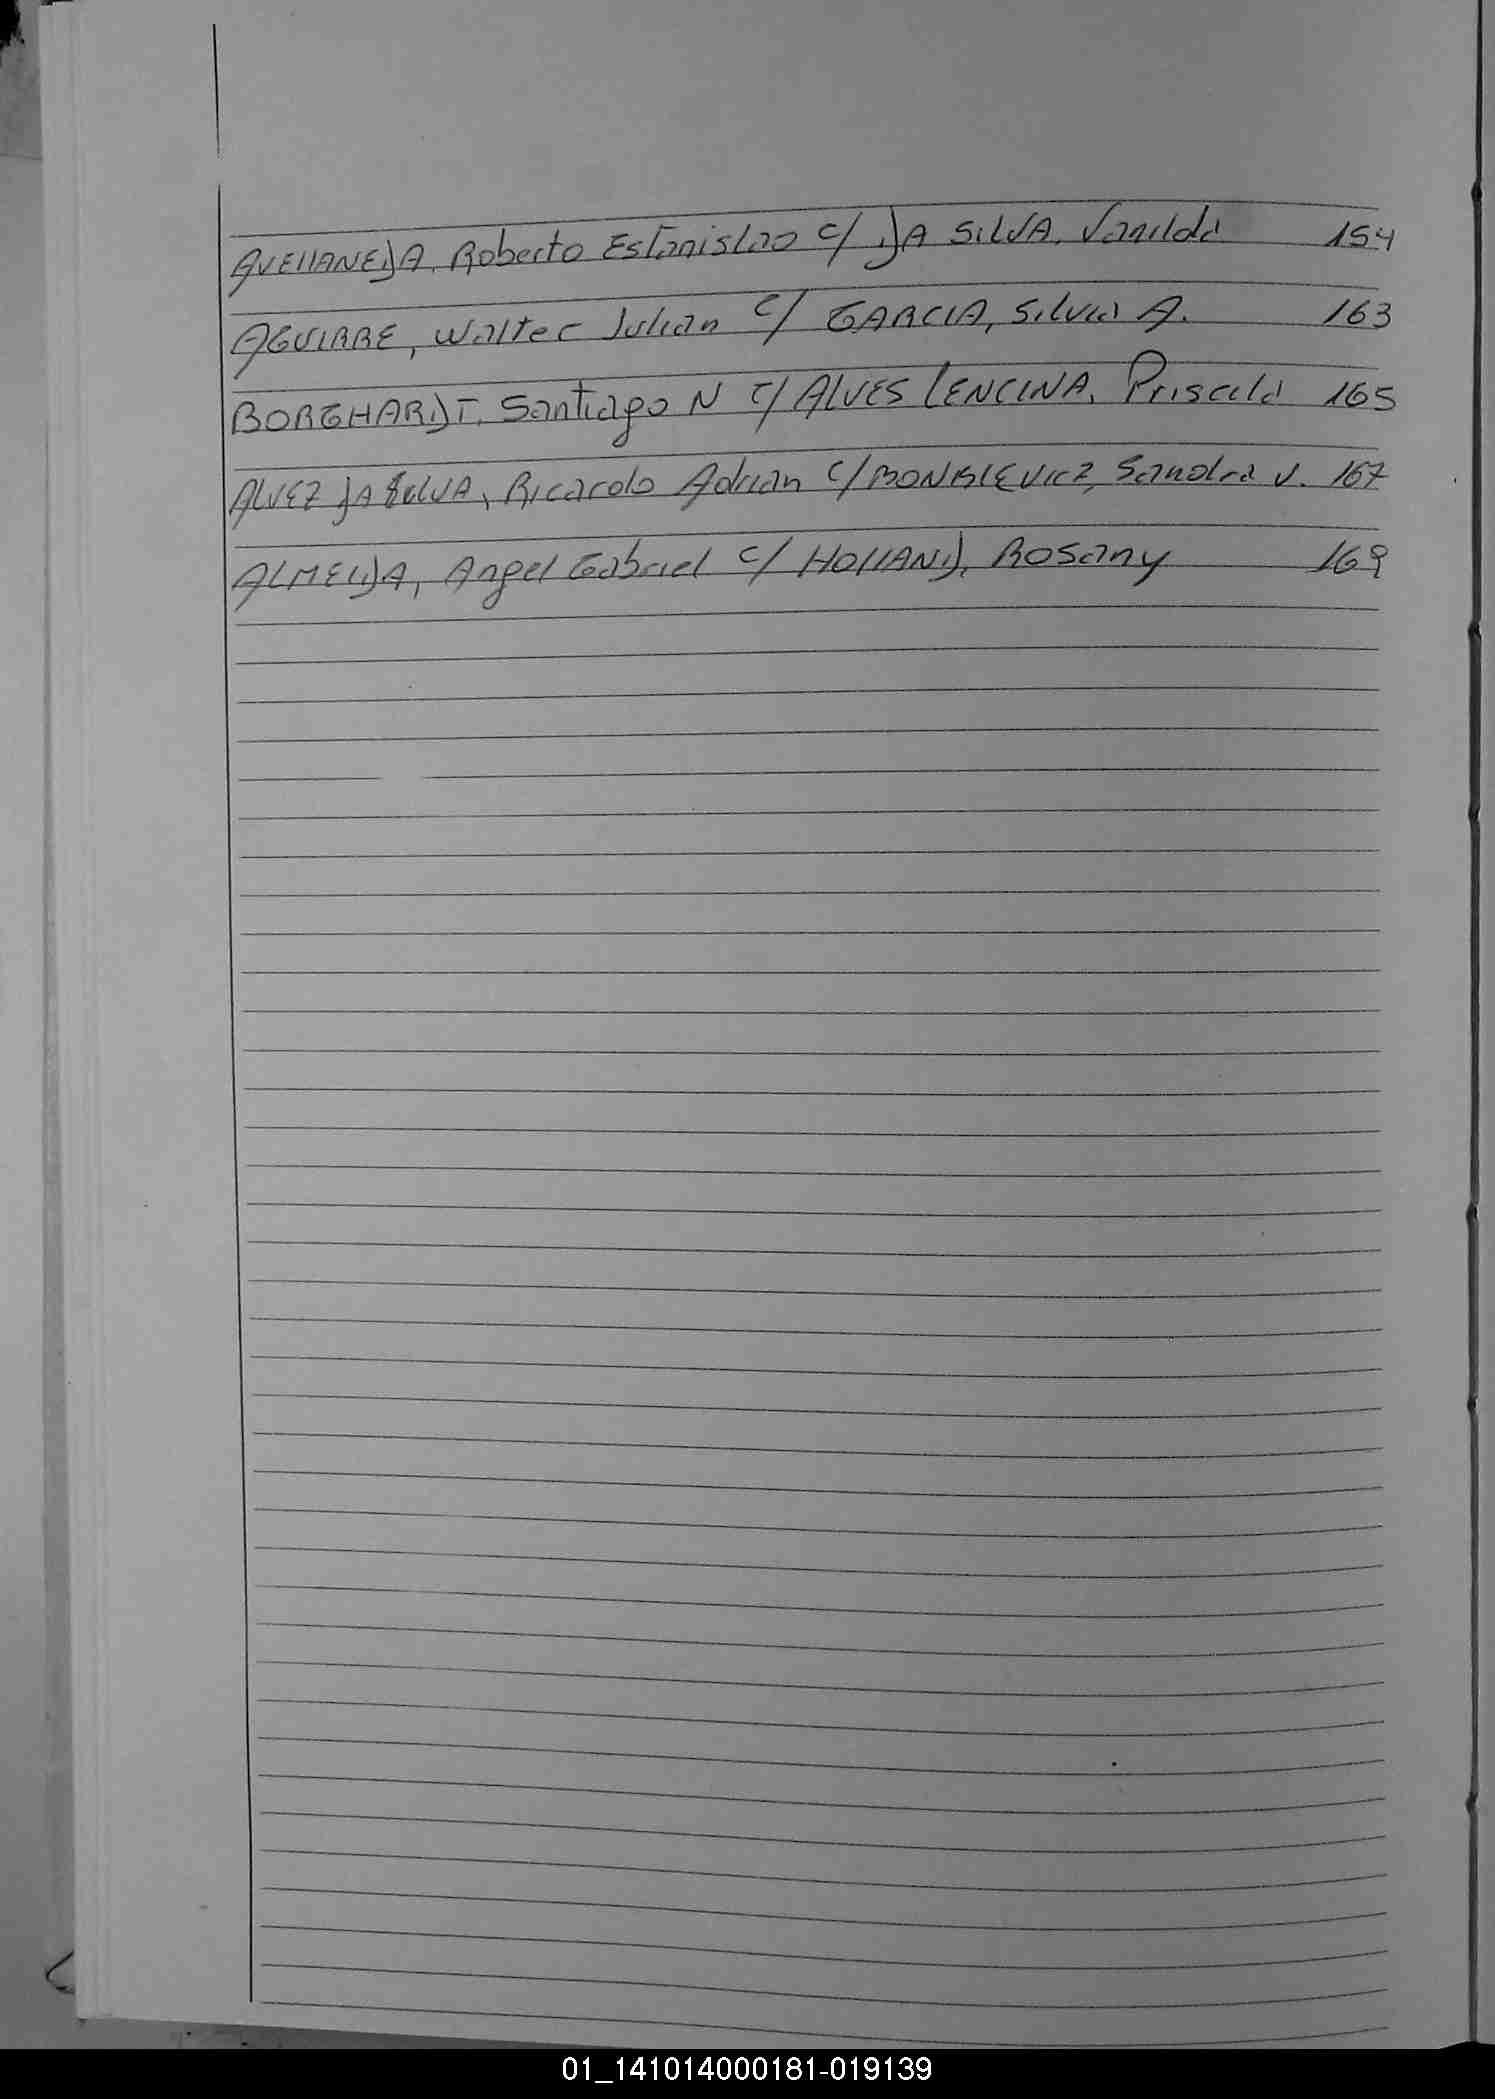 AVEllANEDA, Roberto Estanislao c/ DA SILVA, Vanilda 154
AGUIRRE, Walter Julian c/ GARCIA, Silvia A. 163
BORGHARDT, Santiago N c/ ALVES LENCINA, Priscila 165
ALVEZ DA SILVA, Ricardo Adrian c/ Sandra V. 167
ALMEIDA, Angel Gabriel c/ HOllAND, Rosany 169
01_141014000181-019139